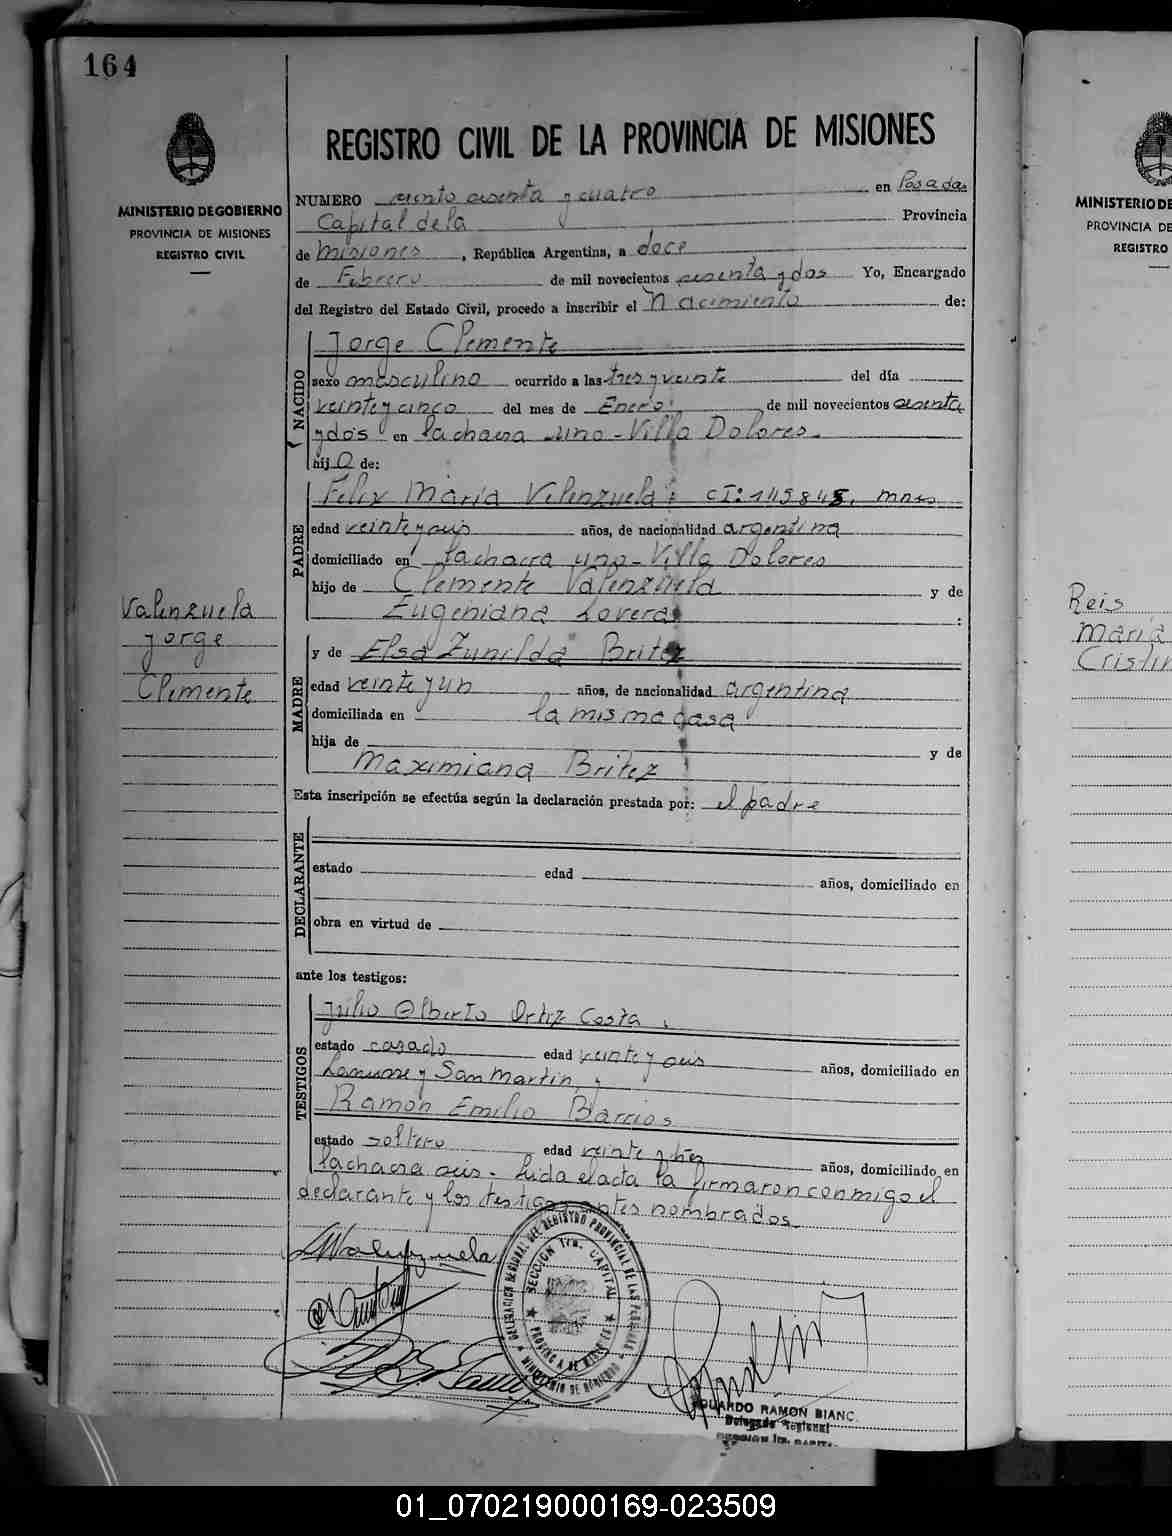 164
MINISTERIO DE GOBIERNO
PROVINCIA DE MISIONES
REGISTRO CIVIL
REGISTRO CIVIL DE LA PROVINCIA DE MISIONES
NUMERO ciento sesenta y cuatro en Posadas
Capital de la Provincia
de Misiones, República Argentina, a doce
de Febrero de mil novecientos sesenta y dos Yo, Encargado
del Registro del Estado Civil, procedo a inscribir el Nacimiento de:
NACIDO
Jorge Clemente
sexo masculino ocurrido a las tres y veinte del día
veinte y cinco del mes de Enero de mil novecientos sesenta
y dos en la chacra uno - Villa Dolores.
hijo de:
PADRE
Felix Maria Valenzuela: CI: 145845. mnes
edad veinte y seis años, de nacionalidad argentina
domiciliado en la chacra uno - Villa Dolores
hijo de Clemente Valenzuela y de
Eugeniana Lovera :
MADRE
y de Elsa Zunilda Britez
edad veinte y un años, de nacionalidad argentina
domiciliada en la misma casa
hija de y de
Maximiana Britez
Esta inscripción se efectúa según la declaración prestada por: el padre
DECLARANTE
estado edad años, domiciliado en
obra en virtud de
ante los testigos:
TESTIGOS
Julio Alberto Ortiz Costa,
estado casado edad veinte y seis años, domiciliado en
y San Martin, y
Ramón Emilio Barrios
estado soltero edad veinte y tres años, domiciliado en
la chacra seis. Leida el acta la firmaron conmigo el
declarante y los testigos antes nombrados.
Valenzuela
Jorge
Clemente
Valenzuela
DELEGACION REGIONAL DEL REGISTRO PROVINCIAL DE LAS PERSONAS
SECCION 1ra. CAPITAL
PROVINCIA DE MISIONES
MINISTERIO DE GOBIERNO
EDUARDO RAMON BIANC
Delegado Regional
SECCION 1ra. CAPITAL
MINISTERIO DE
PROVINCIA DE
REGISTRO
Reis
Maria
Cristin
01_070219000169-023509